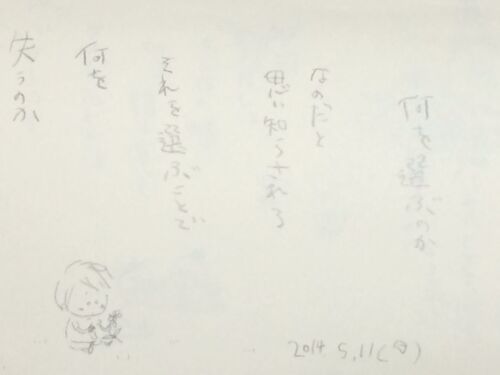 何を選ぶのか
なのだと
思い知らされる
それを選ぶことで
何を
失うのか
2014.5.11(日)